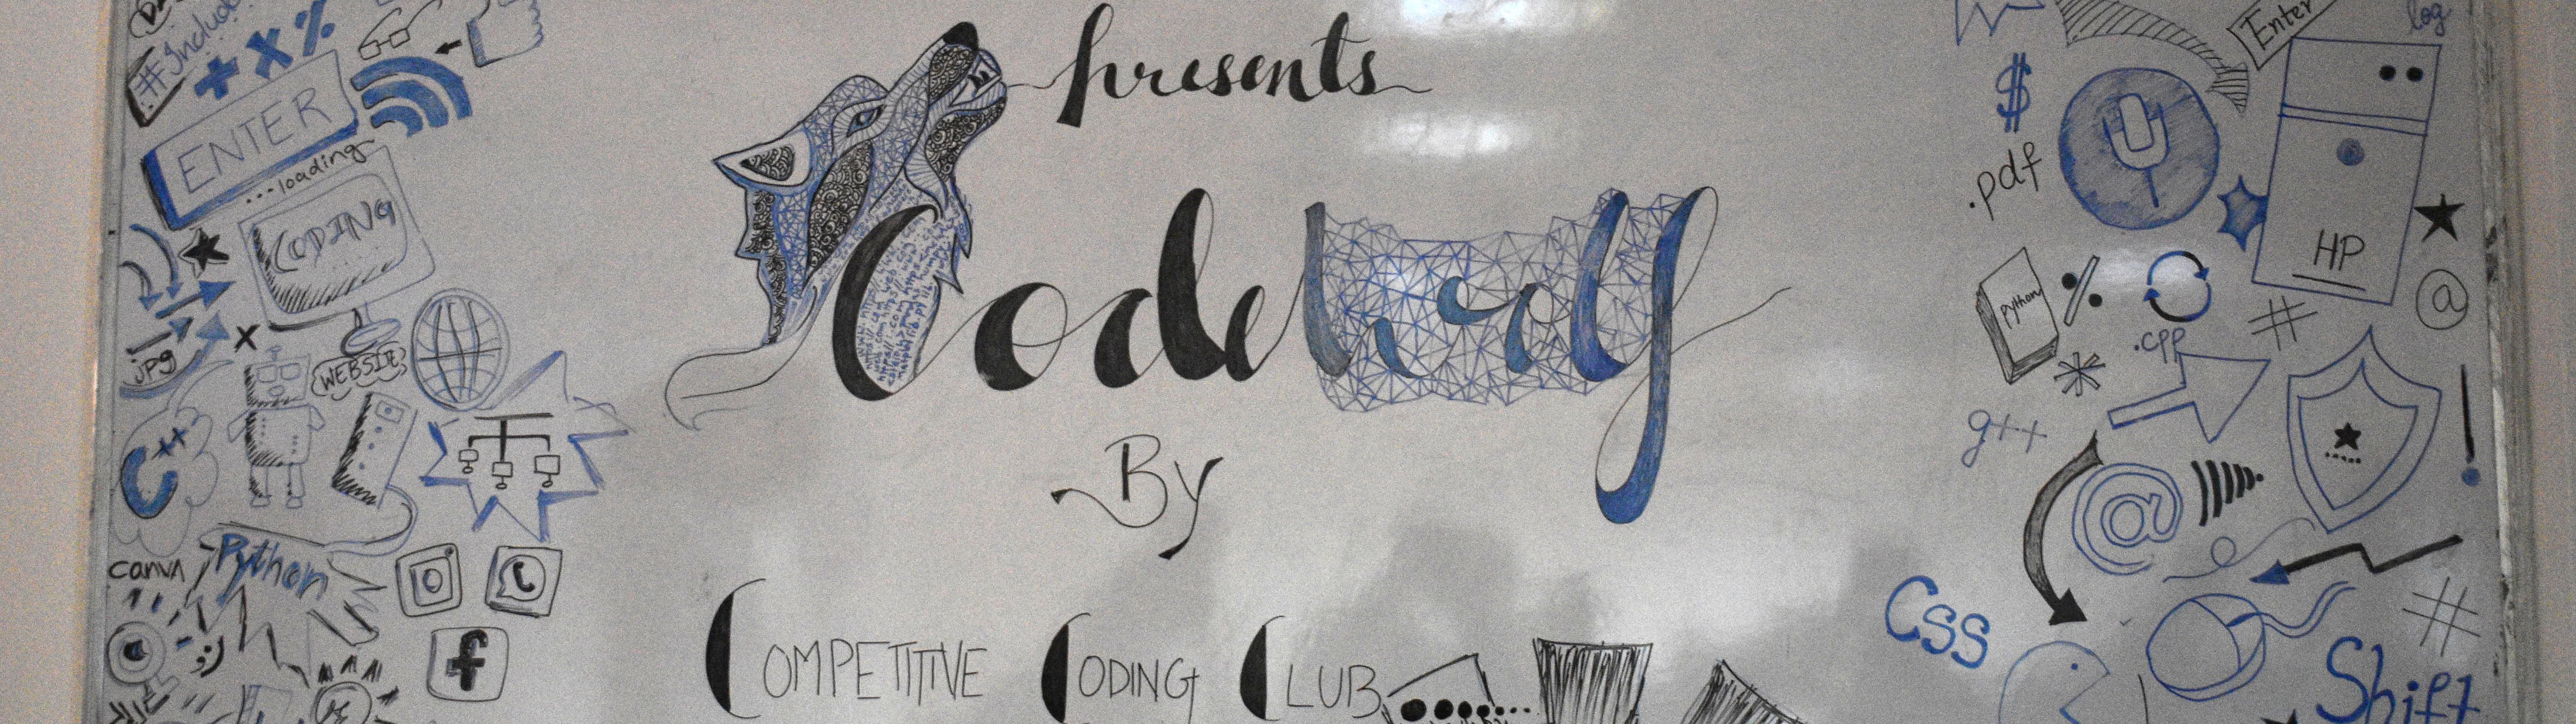 #Include
+ x %
ENTER
...loading
CODING
.jpg
x
WEBSITE
C++
Python
canva
f
presents
Codewolf
By
COMPETITIVE CODING CLUB
Enter
log
$
.pdf
HP
Python
%
@
#
.cpp
*
g++
!
@
#
CSS
Shift